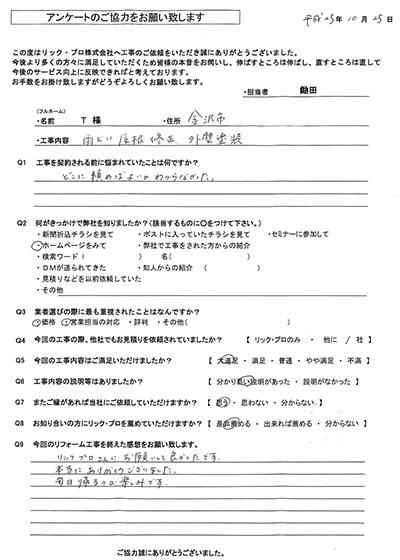 アンケートのご協力をお願い致します
平成25年10月25日
この度はリック・プロ株式会社へ工事のご依頼をいただき誠にありがとうございました。
今後より多くの方々に満足していただくため皆様の本音をお伺いし、伸ばすところは伸ばし、直すところは直して
今後のサービス向上に反映できればと考えております。
お手数をお掛け致しますがどうぞよろしくお願い致します。
・担当者 鋤田
(フルネーム)
・名前 T 様 ・住所 金沢市
・工事内容 雨どい 屋根修正 外壁塗装
Q1 工事を契約される前に悩まれていたことは何ですか?
どこに頼めばよいかわからなかった。
Q2 何がきっかけで弊社を知りましたか?(該当するものに○をつけて下さい。)
・新聞折込チラシを見て ・ポストに入っていたチラシを見て ・セミナーに参加して
・ホームページをみて ・弊社で工事をされた方からの紹介
・検索ワード( ) 名( )
・DMが送られてきた ・知人からの紹介 ( )
・見積りなどを以前依頼していた
・その他
Q3 業者選びの際に最も重視されたことはなんですか?
・価格 ・営業担当の対応 ・評判 ・その他( )
Q4 今回の工事の際、他社でもお見積りを依頼されていましたか? 【 リック・プロのみ ・ 他に / 社 】
Q5 今回の工事内容はご満足いただけましたか? 【 大満足 ・ 満足 ・ 普通 ・ やや満足 ・ 不満 】
Q6 工事内容の説明等はありましたか? 【 分かり易い説明があった ・ 説明がなかった 】
Q7 またご縁があれば当社にご依頼していただけますか? 【 思う ・ 思わない ・ 分からない 】
Q8 お知り合いの方にリック・プロを薦めていただけますか? 【 是非薦める ・ 出来れば薦める ・ 分からない 】
Q9 今回のリフォーム工事を終えた感想をお願い致します。
リックプロさんにお願いして良かったです。
本当にありがとうございました。
毎日帰るのが楽しみです。
ご協力誠にありがとうございました。